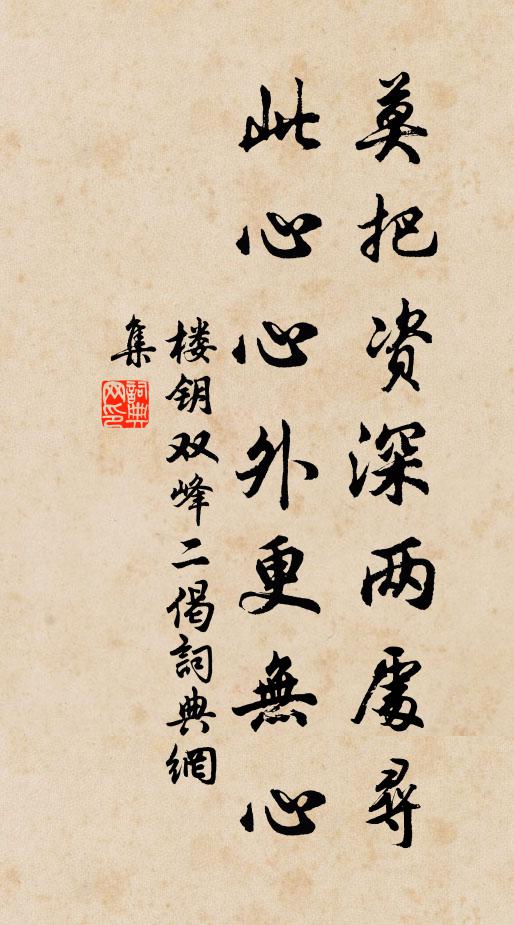 莫把资深两處尋
此心心外更無心
楼钥双峰二偈詞典網
集
詞典
网印